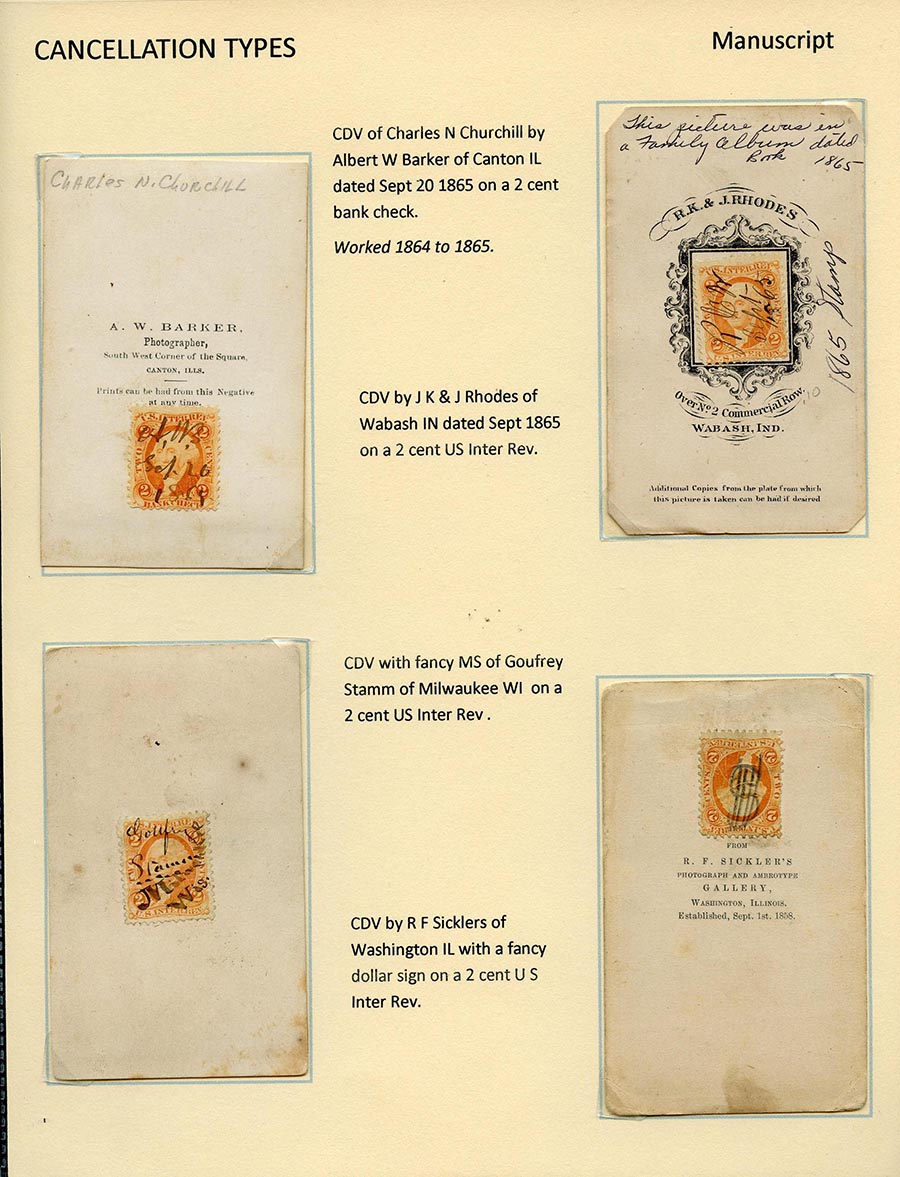 CANCELLATION TYPES
Manuscript
CDV of Charles N Churchill by
Albert W Barker of Canton IL
dated Sept 20 1865 on a 2 cent
bank check.
Worked 1864 to 1865.
CHARLES N. CHURCHILL
A. W. BARKER,
Photographer,
South West Corner of the Square,
CANTON, ILLS.
Prints can be had from this Negative
at any time.
U.S. INTER. REV.
TWO
2
2
BANK CHECK
A. W. B
Sept. 20
This picture was in
a Family Album dated
Book 1865
R.K. & J. RHODES
U.S. INTER. REV.
U.S. INTER. REV.
1865 Stamp
Over No. 2 Commercial Row.
WABASH, IND.
Additional Copies from the plate from which
this picture is taken can be had if desired
CDV by J K & J Rhodes of
Wabash IN dated Sept 1865
on a 2 cent US Inter Rev.
CDV with fancy MS of Goufrey
Stamm of Milwaukee WI on a
2 cent US Inter Rev .
U.S. INTER. REV.
Stamm
Wis.
U.S. INTER. REV.
CDV by R F Sicklers of
Washington IL with a fancy
dollar sign on a 2 cent U S
Inter Rev.
U.S. INTER. REV.
CENTS
TWO
2
2
U.S. INTER. REV.
FROM
R. F. SICKLER'S
PHOTOGRAPH AND AMBROTYPE
GALLERY,
WASHINGTON, ILLINOIS.
Established, Sept. 1st. 1858.